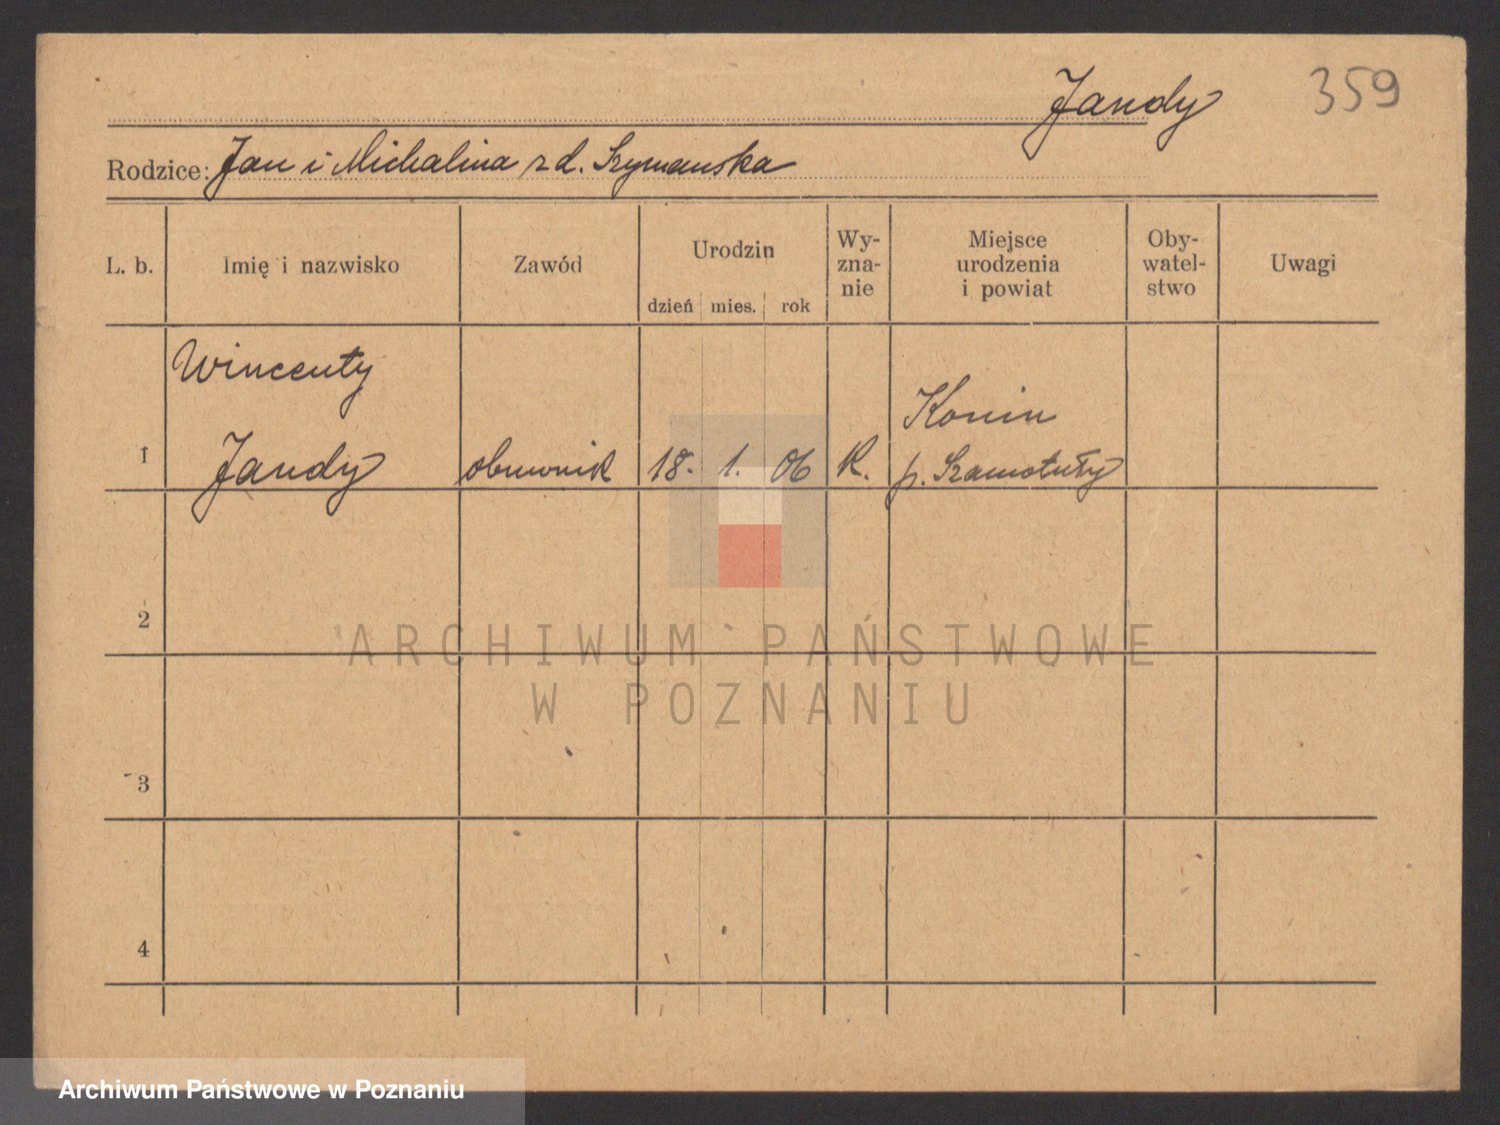 Jandy 359
Rodzice: Jan i Michalina z d. Szymanska
L. b. Imię i nazwisko Zawód Urodzin dzień mies. rok Wy-zna-nie Miejsce urodzenia i powiat Oby-watel-stwo Uwagi
Wincenty
Konin
1 Jandy obuwnik 18. 1. 06 R. p. Szamotuły
2
ARCHIWUM PAŃSTWOWE
W POZNANIU
3
4
Archiwum Państwowe w Poznaniu